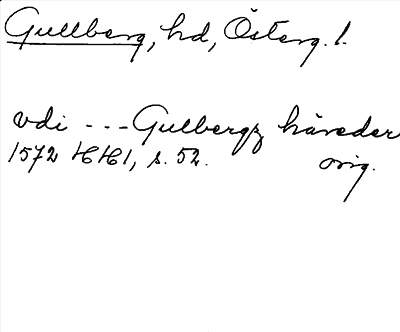 Gullberg, hd, Österg. l.
vdi --- Gulbergz häreder
1572 HH1, s. 52. orig.